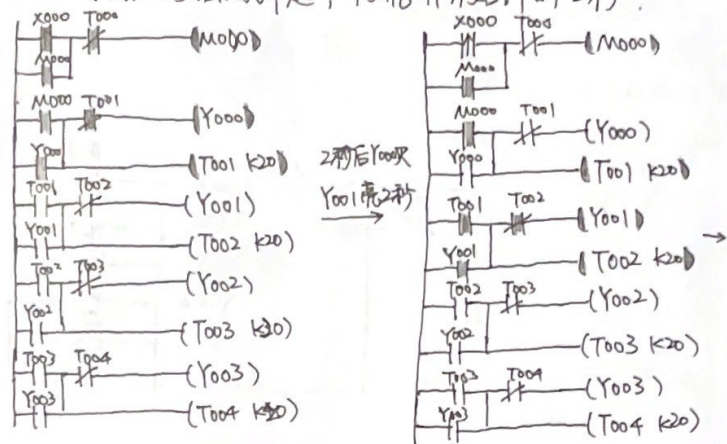 X000 T000
(M000)
M000
M000 T001
(Y000)
Y000
(T001 K20)
T001 T002
(Y001)
Y001
(T002 K20)
T002 T003
(Y002)
Y002
(T003 K20)
T003 T004
(Y003)
Y003
(T004 K20)
2秒后Y000灭
Y001亮2秒
X000 T000
(M000)
M000
M000 T001
(Y000)
Y000
(T001 K20)
T001 T002
(Y001)
Y001
(T002 K20)
T002 T003
(Y002)
Y002
(T003 K20)
T003 T004
(Y003)
Y003
(T004 K20)